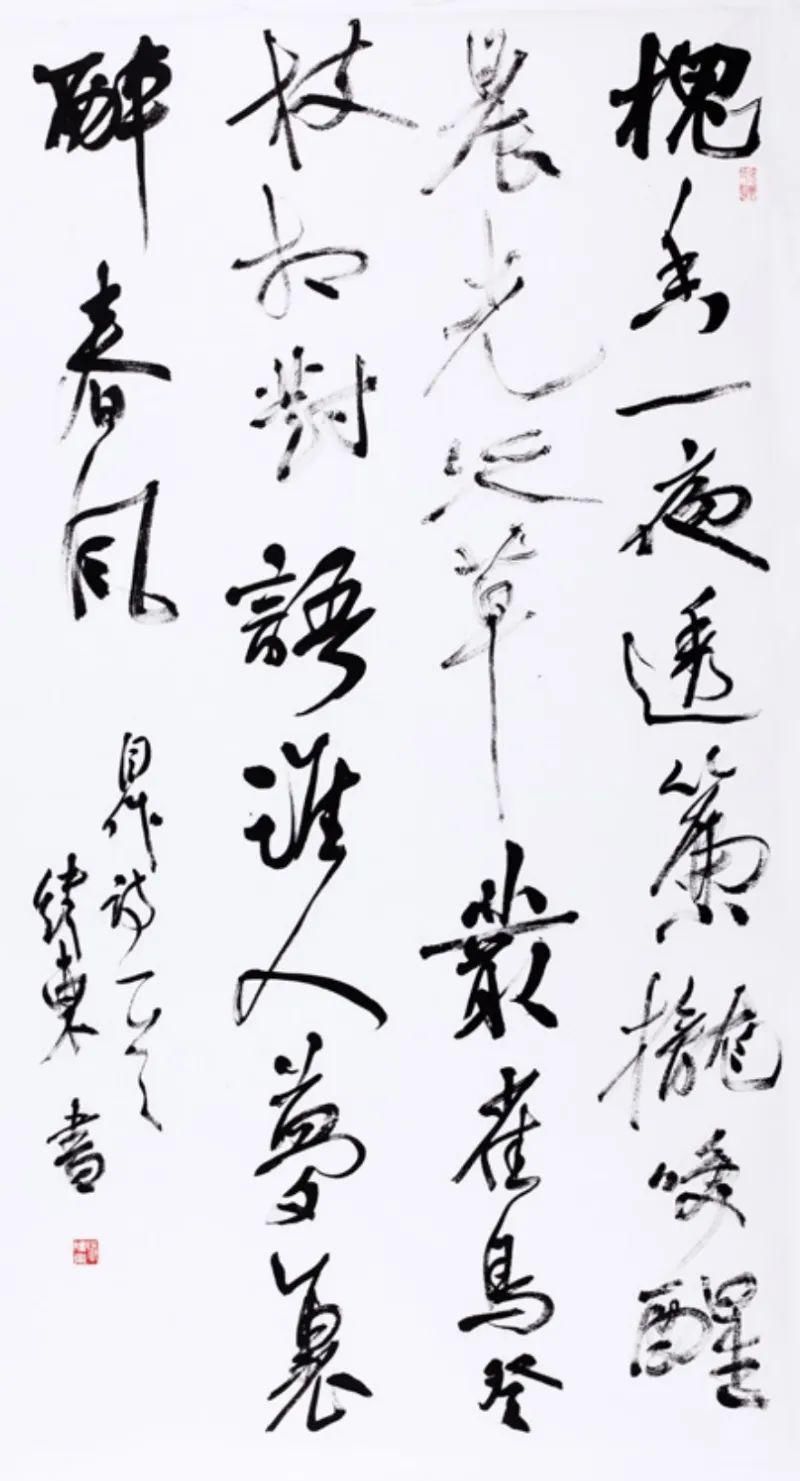 槐香一夜透簾櫳喚醒
晨光從草叢雀鳥登
枝相對語誰人夢裏
醉春風
自作詩一首
東書